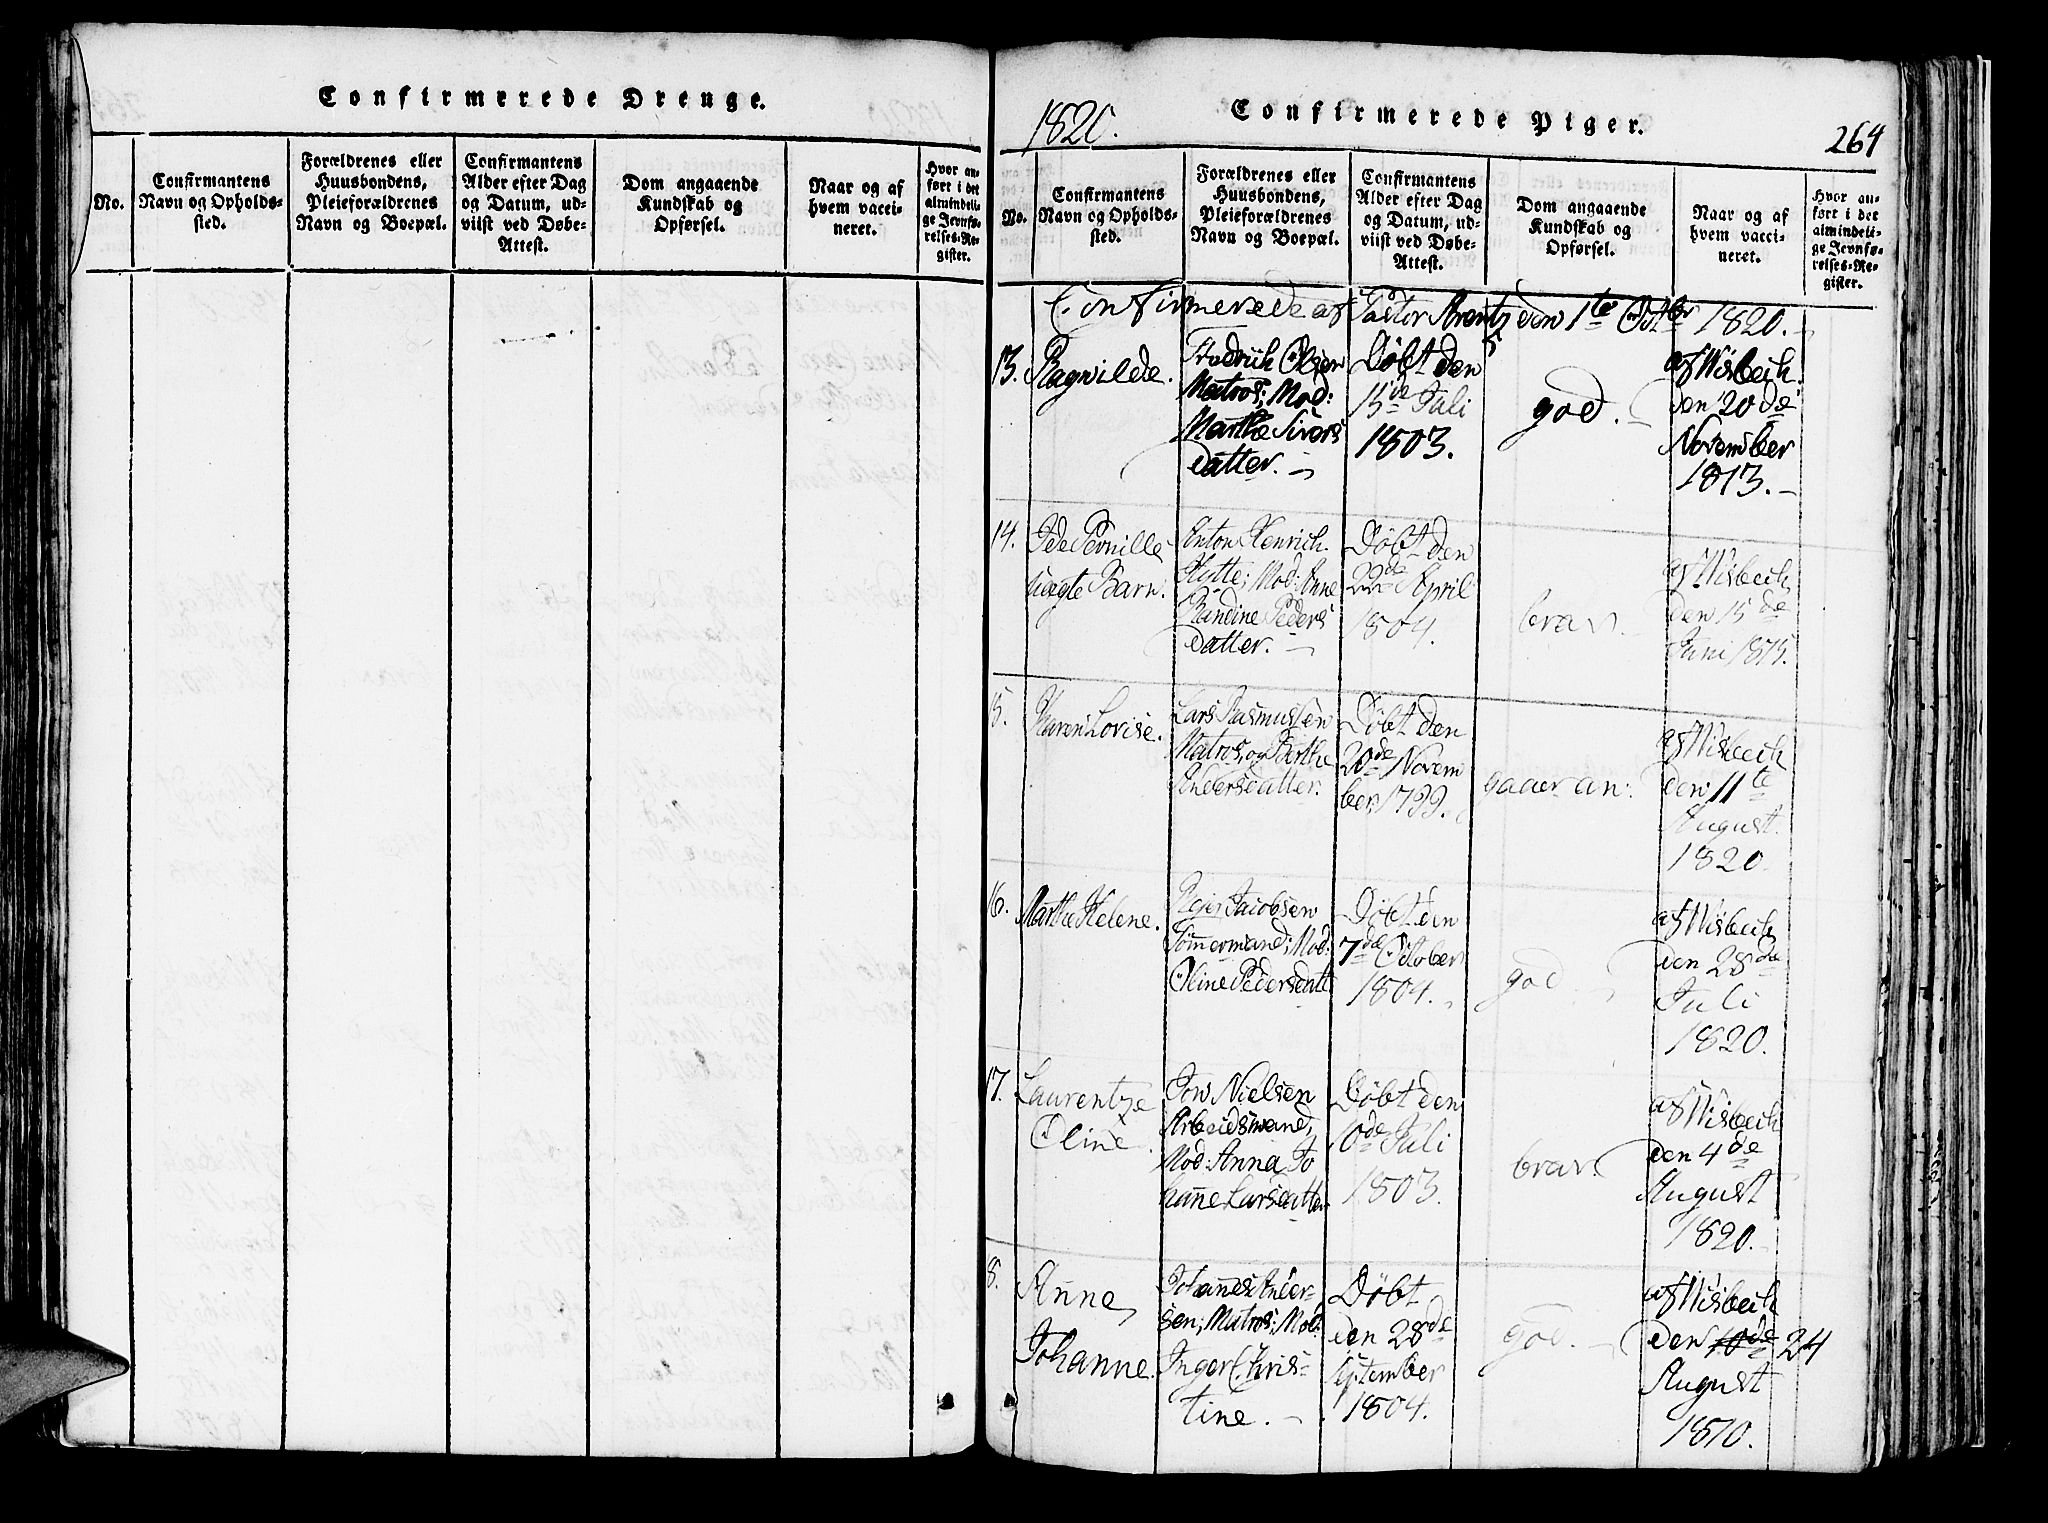 Confirmerede Drenge.
No.
Confirmantens
Navn og Opholds-
sted.
Forældrenes eller
Huusbondens,
Pleieforældrenes
Navn og Boepæl.
Confirmantens
Alder efter Dag
og Datum, ud-
viist ved Døbe-
Attest.
Dom angaaende
Kundskab og
Opførsel.
Naar og af
hvem vacci-
neret.
Hvor an-
ført i det
almindeli-
ge Jevnfø-
relses-Re-
gister.
1820.
Confirmerede Piger.
264
No.
Confirmantens
Navn og Opholds-
sted.
Forældrenes eller
Huusbondens,
Pleieforældrenes
Navn og Boepæl.
Confirmantens
Alder efter Dag
og Datum, ud-
viist ved Døbe-
Attest.
Dom angaaende
Kundskab og
Opførsel.
Naar og af
hvem vacci-
neret.
Hvor an-
ført i det
almindeli-
ge Jevnfø-
relses-Re-
gister.
Confirmerede af Pastor Arentz den 1te Octbr 1820.
13.
Ragnilde.
Fredrich Olsen
Matros; Mod:
Marthe Sivers
datter.
Døbt den
15de Juli
1803.
god.
af Wisbech
den 20de
November
1813.
14.
Ide Pernille
uægte Barn.
Anton Henrich
Hytte; Mod: Anne
Randine Peders
datter.
Døbt den
22de April
1804.
brav.
af Wisbech
den 15de
Juni 1815.
15.
Karen Lovise.
Lars Rasmussen
Matros, og Berthe
Andersdatter.
Døbt den
20de Novem
ber 1799.
gaaer an.
af Wisbech
den 11te
August
1820.
16.
Marthe Helene.
Rejer Jacobsen
Tømmermand; Mod:
Oline Pedersdatt
Døbt den
7de October
1804.
god.
af Wisbech
den 28de
Juli
1820.
17.
Laurentze
Oline.
Jon Nielsen
Arbeidsmand,
Mod: Anna Jo
hanne Larsdatter
Døbt den
10de Juli
1803.
brav.
af Wisbech
den 4de
August
1820.
8.
Anne
Johanne.
Johannes Ander-
sen; Matros; Mod:
Inger Chris-
tine.
Døbt
den 28de
September
1804.
god.
af Wisbech
den 10de 24
August
1810.